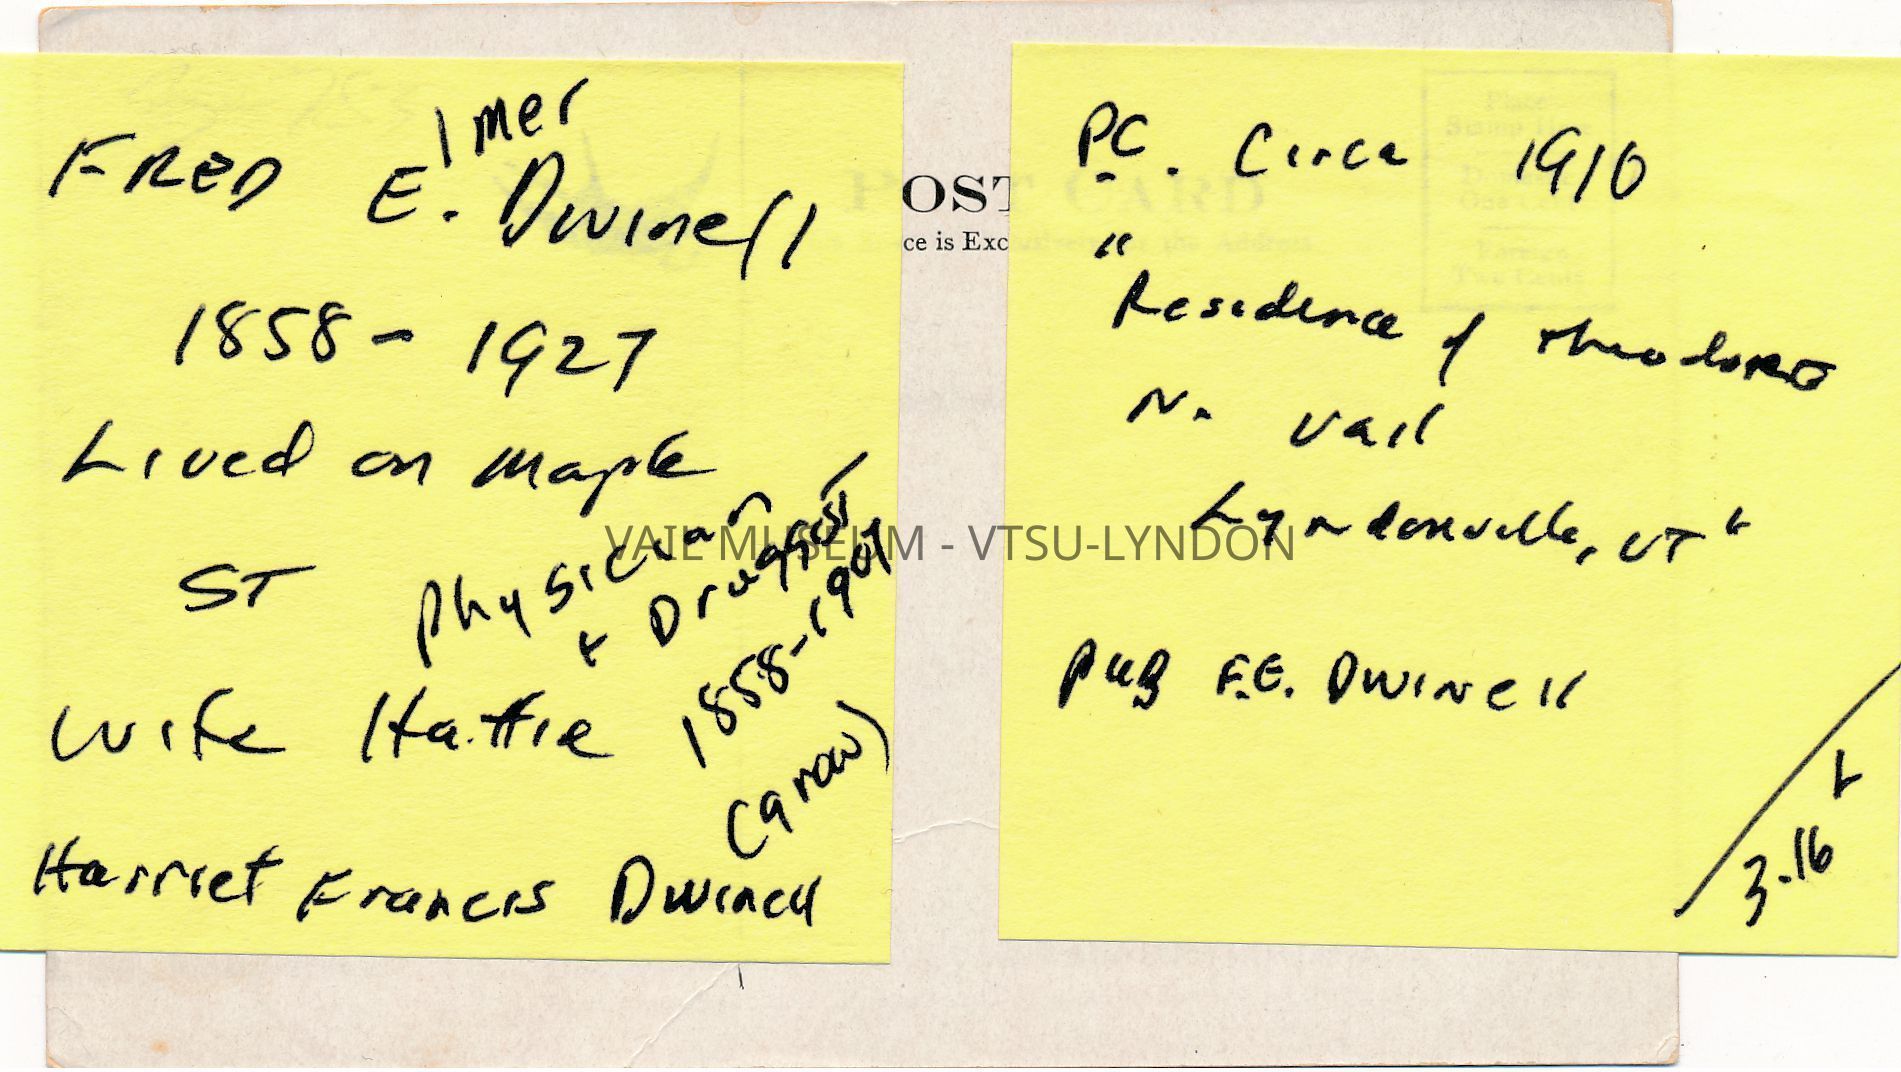 lmer
FRED E. Dwinell
1858 - 1927
Lived on Maple
ST
Physician
+ Druggist
1858-1907
Wife Hattie
(Carow)
Harriet Francis Dwinell
PC. Circa 1910
"
Residence of Theodore
N. Vail
Lyndonville, VT"
Pub F.E. Dwinell
3-16
POST CARD
ce is Exclusively for the Address
Place
Stamp Here
One Cent
Foreign
Two Cents
VAIL MUSEUM - VTSU-LYNDON